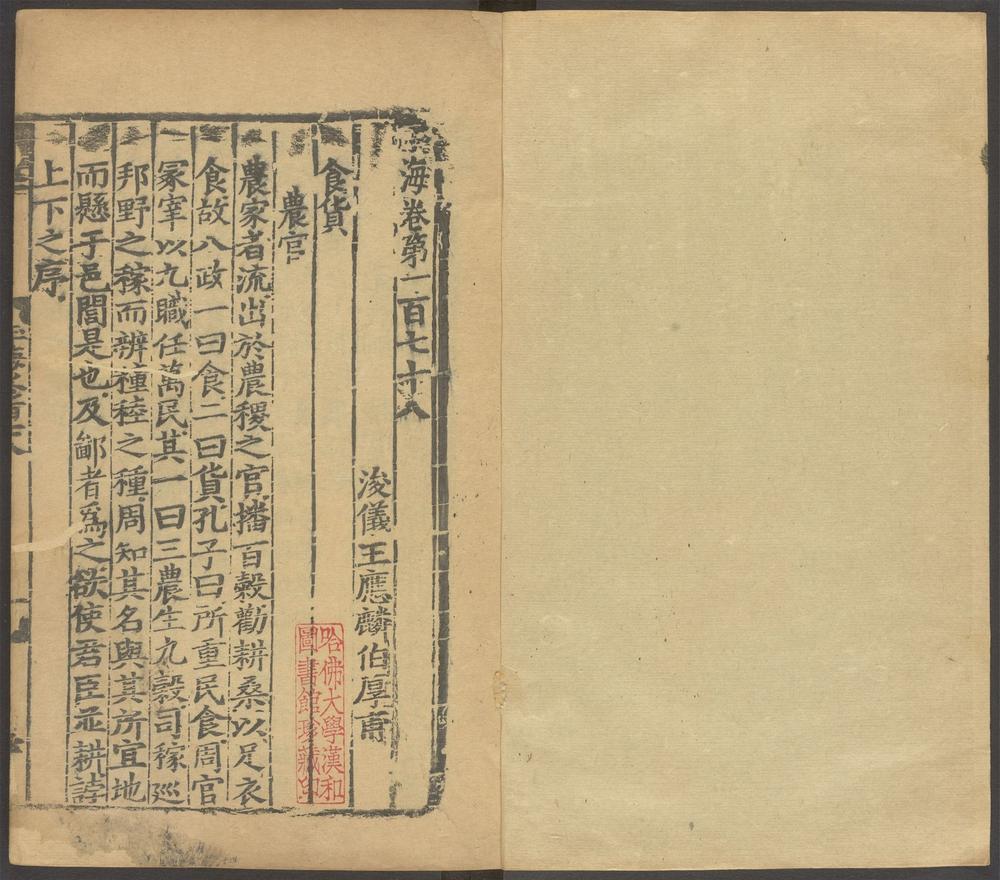 玉海卷第一百七十八
浚儀王應麟伯厚甫
食貨
農官
農家者流出於農稷之官播百穀勸耕桑以足衣
食故八政一曰食二曰貨孔子曰所重民食周官
冢宰以九職任萬民其一曰三農生九穀司稼廵
邦野之稼而辨穜稑之種周知其名與其所宜地
而懸于邑閭是也及鄙者爲之欲使君臣並耕誖
上下之序
哈佛大學漢和
圖書館珍藏印